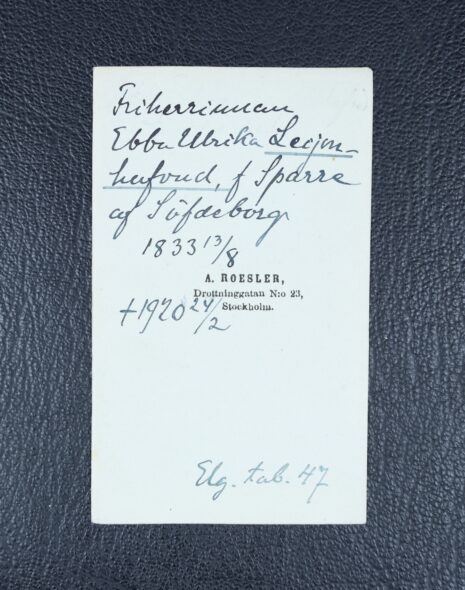 Friherrinnan
Ebba Ulrika Leijon-
hufvud, f Sparre
af Söfdeborg
1833 13/8
A. ROESLER,
Drottninggatan N:o 23,
Stockholm.
+1920 24/2
Elg. tab. 47